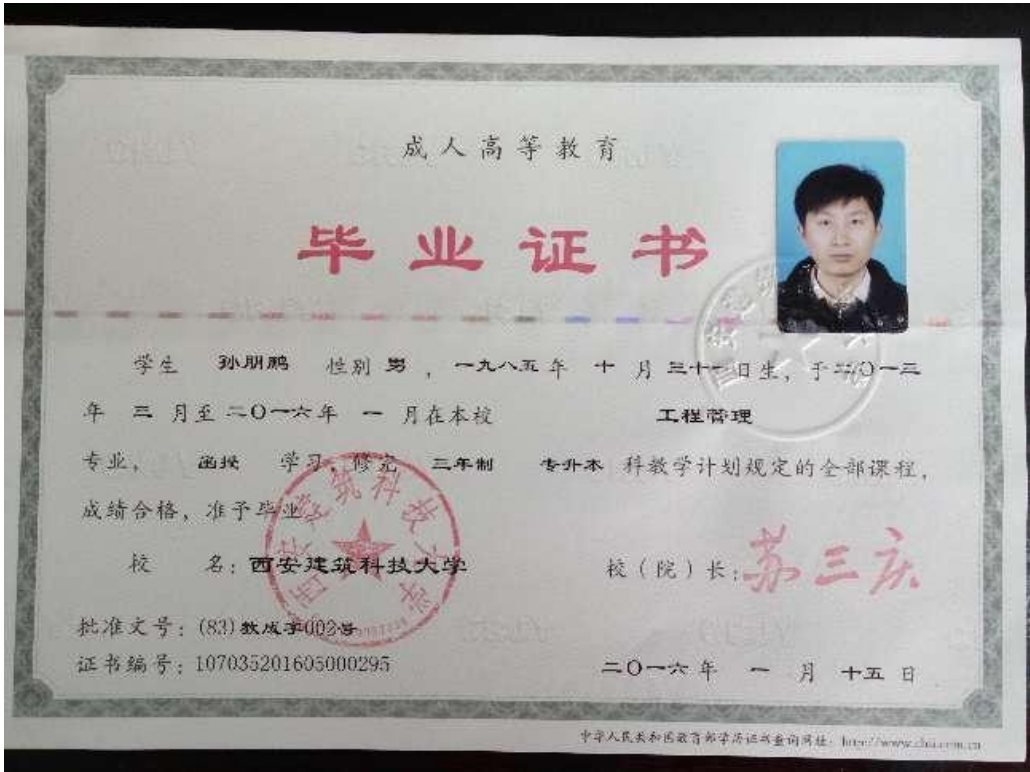 成人高等教育
毕业证书
学生 孙朋鹏 性别 男 ，一九八五年 十 月 三十一日生，于二〇一三
年 三 月至二〇一六年 一 月在本校 工程管理
专业， 函授 学习，修完 三年制 专升本 科教学计划规定的全部课程，
成绩合格，准予毕业。
校 名：西安建筑科技大学
校（院）长：苏三庆
批准文号：(83)教成字002号
证书编号：107035201605000295
二〇一六年 一 月 十五 日
西安建筑科技大学
中华人民共和国教育部学历证书查询网址：http://www.chsi.com.cn